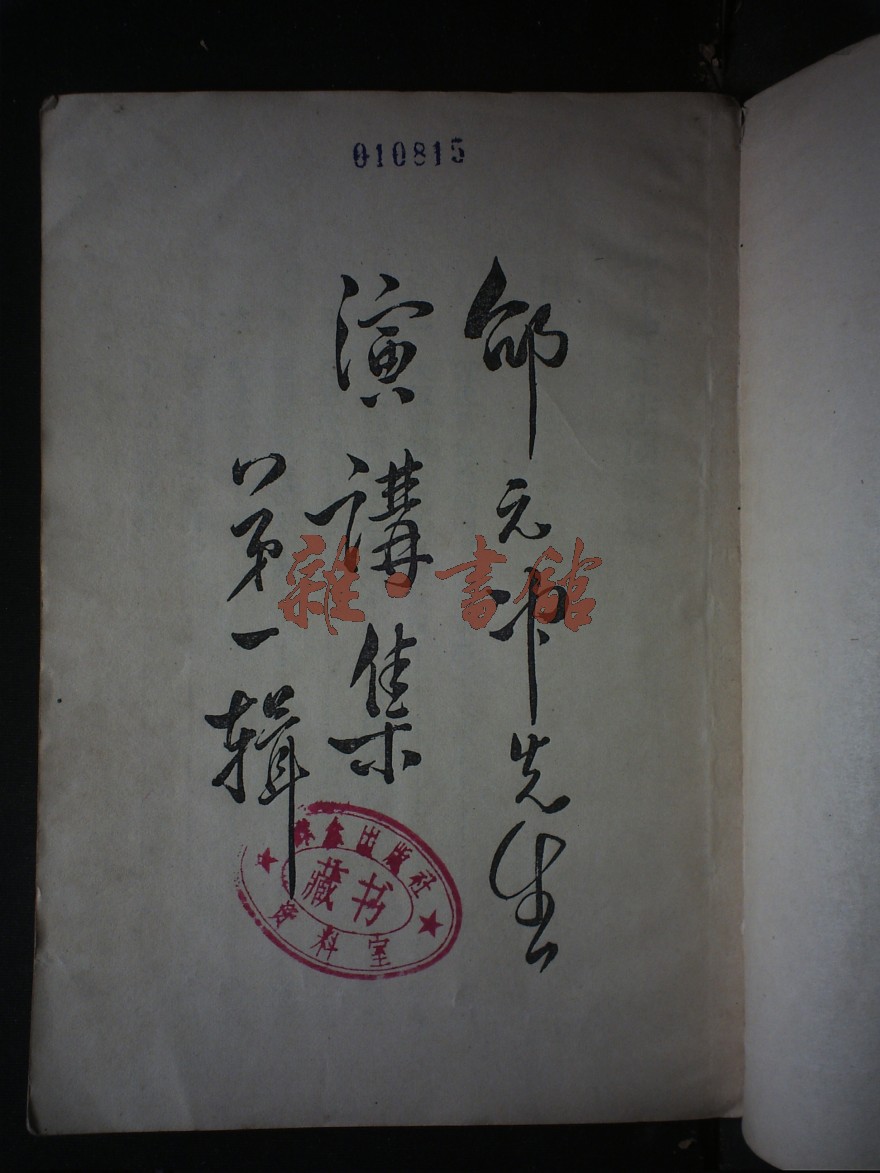 010815
邵元冲先生
演講集
第一輯
雜·書館
出版社
藏书
资料室